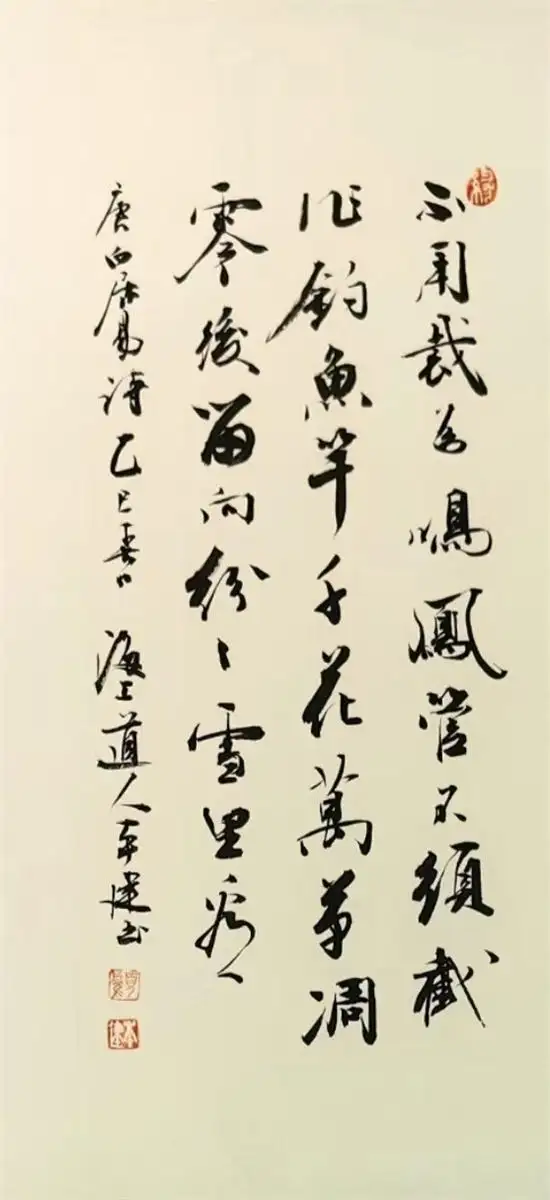 不用裁为鳴鳳管不須截
作釣魚竿千花萬草凋
零後留向紛〻雪里看
唐白居易詩乙巳春日 海上道人書